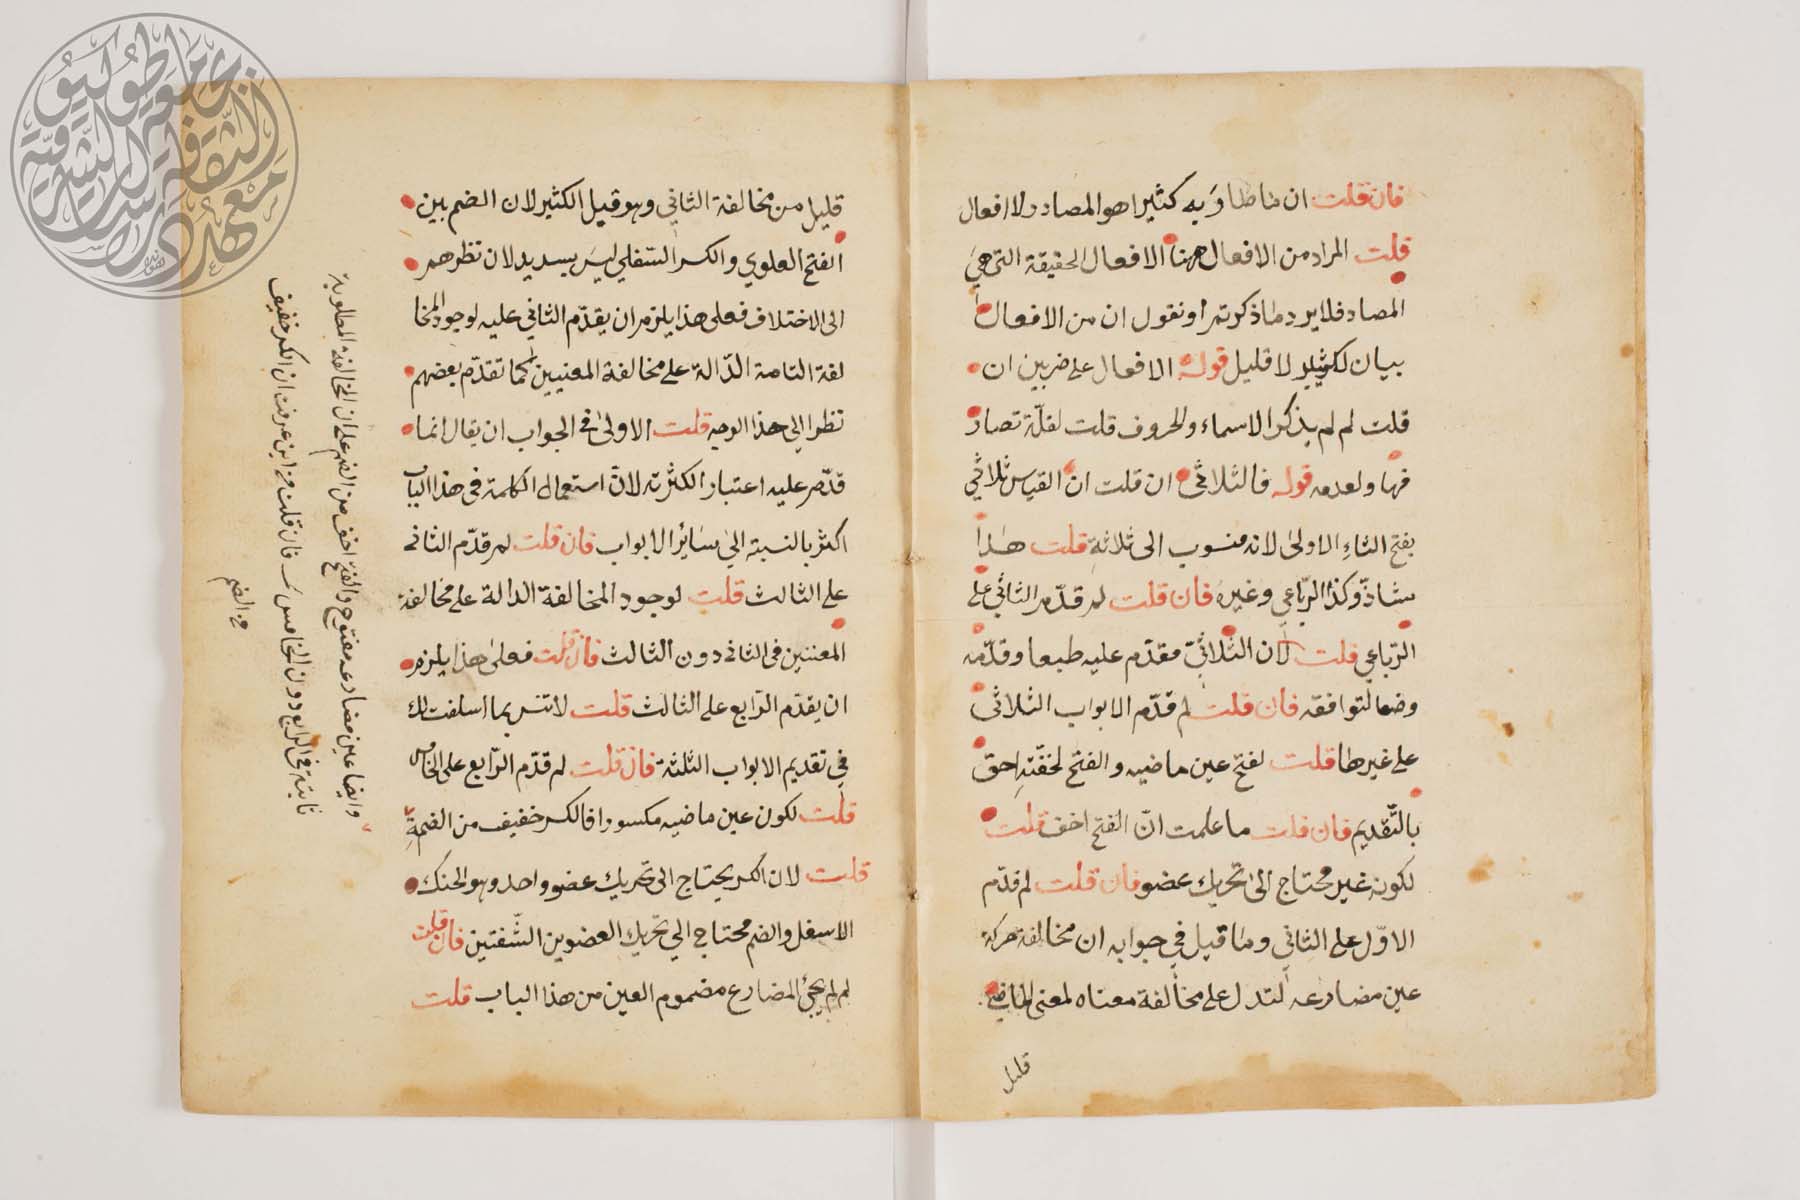 فان قلت ان ما طلا وَبه كثيرا هو المصادر لا افعال
قلت المراد من الافعال ههنا الافعال الحقيقة التى هىَ
المصادر فلا يرد ما ذكرتم او نقول ان من الافعال
بيان لكثير لا قليل قوله الافعال على ضربين ان
قلت لم لم يذكر الاسماء والحروف قلت لقلّة تصار
فها ولعدمه قوله فالثلاثى ان قلت ان القيس ثلاثي
بفتح الثاء الاولى لانه منسوب الى ثلاثة قلت هذا
شاذّ وكذا الرّباعي وغيره فان قلت لم قدّم الثاني على
الرّباعي قلت لان الثلاثىّ مقدّم عليه طبعا وقدّمه
وضعا لتوافقه فان قلت لم قدّم الابواب الثلاثى
على غيرها قلت لفتح عين ماضيه والفتح لخفّته احق
بالتّقديم فان قلت ما علمت انّ الفتح اخف قلت
لكونه غير محتاج الى تحريك عضو فان قلت لم قدّم
الاوّل على الثاني وما قيل في جوابه ان مخالفة حركة
عين مضارعه لتدل على مخالفة معناه لمعنى الماضي
قليل
قليل من مخالفة الثاني وهو قيل الكثير لان الضم بين
الفتح العلوي والكسر السّفلي ليس بسديد لان نظرهم
الى الاختلاف فعلى هذا يلزم ان يقدّم الثاني عليه لوجود المخا
لفة التامة الدّالة على مخالفة المعنيين كما تقدّم بعضهم
نظرا الي هذا الوجه قلت الاولى في الجواب ان يقال انما
قدّم عليه اعتبار الكثرته لانّ استعمال الكلمة في هذا الباب
اكثر بالنسبة الى سائر الابواب فان قلت لم قدّم الثانى
على الثالث قلت لوجود المخالفة الدالة على مخالفة
المعنيين فى الثانى دون الثالث فان قلت فعلى هذا يلزم
ان يقدّم الرّابع على الثالث قلت لا تنس بما اسلفت لك
في تقديم الابواب الثلثة فان قلت لم قدّم الرّابع على الخامس
قلت لكون عين ماضيه مكسورا فالكسر خفيف من الضمة
قلت لان الكسر يحتاج الى تحريك عضو واحد وهو الحنك
الاسفل والضم محتاج الي تحريك العضوين الشّفتين فان قلت
لم لم يجئ المضارع مضموم العين من هذا الباب قلت
وايضا عين مضارعه مفتوح والفتح اخف من الضم على ان المخالفة المطلوبة
ثابتة فى الرابع دون الخامس فان قلت من اين عرفت ان الكسر خفيف
من الضم
جامعة طوكيو
معهد دراسات الثقافة الشرقية